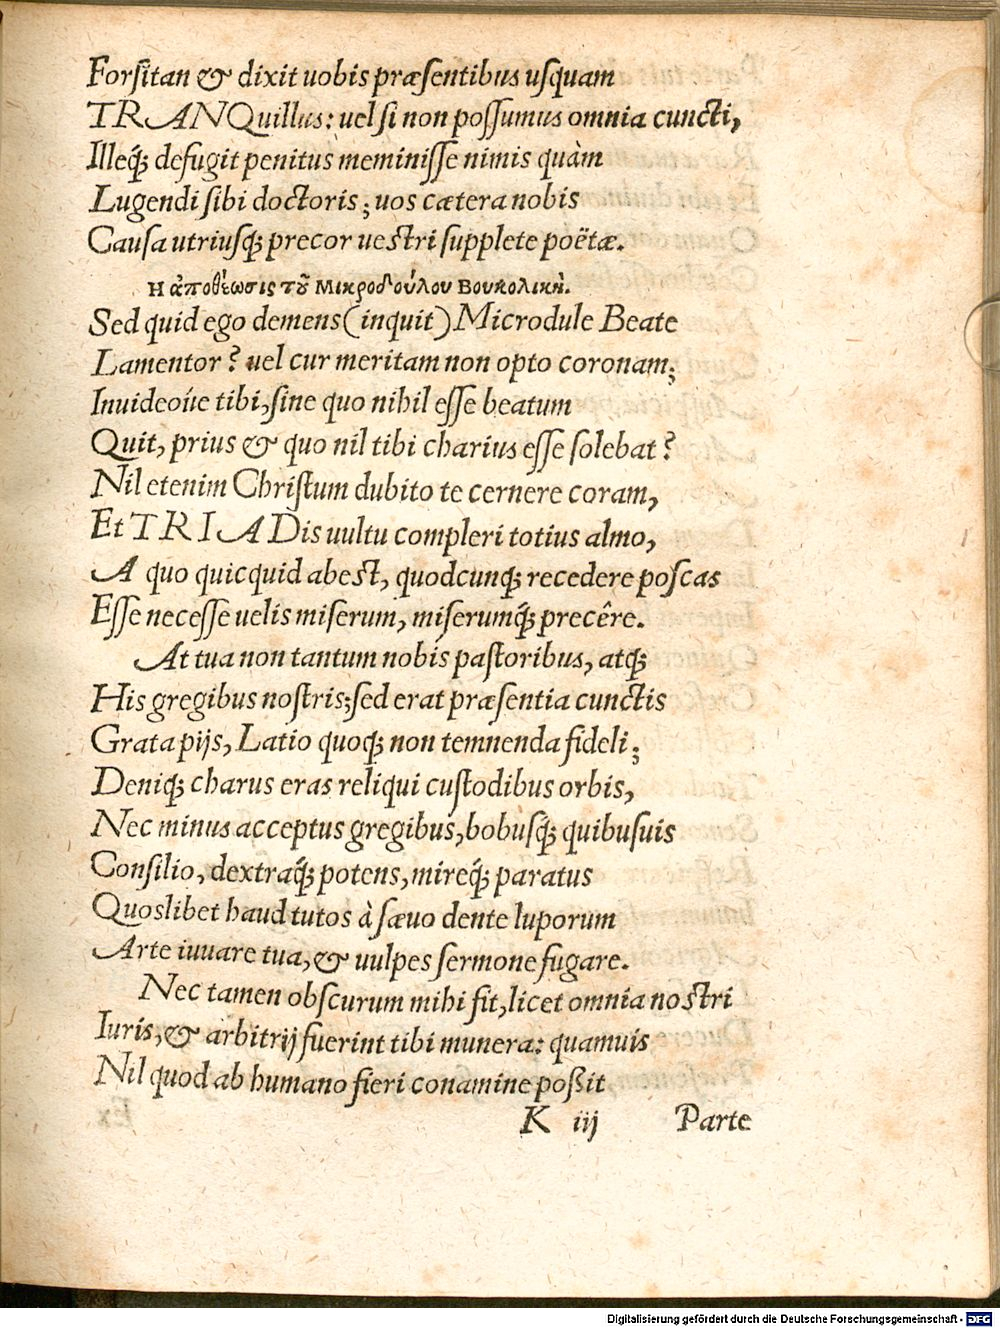 Forsitan & dixit uobis præsentibus usquam
TRANQuillus: uel si non possumus omnia cuncti,
Illeq́; defugit penitus meminisse nimis quàm
Lugendi sibi doctoris; uos cætera nobis
Causa utriusq; precor uestri supplete poëtæ.
Η ἀποθέωσις τȣ͂ Μικροδούλου Βουκολικὴ.
Sed quid ego demens (inquit) Microdule Beate
Lamentor? uel cur meritam non opto coronam;
Inuideoúe tibi, sine quo nihil esse beatum
Quit, prius & quo nil tibi charius esse solebat?
Nil etenim Christum dubito te cernere coram,
Et TRIADis uultu compleri totius almo,
A quo quicquid abest, quodcunq; recedere poscas
Esse necesse uelis miserum, miserumq́; precêre.
At tua non tantum nobis pastoribus, atq;
His gregibus nostris; sed erat præsentia cunctis
Grata pijs, Latio quoq; non temnenda fideli;
Deniq; charus eras reliqui custodibus orbis,
Nec minus acceptus gregibus, bobusq́; quibusuis
Consilio, dextraq́; potens, mireq́; paratus
Quoslibet haud tutos à sæuo dente luporum
Arte iuuare tua, & uulpes sermone fugare.
Nec tamen obscurum mihi fit, licet omnia nostri
Iuris, & arbitrij fuerint tibi munera: quamuis
Nil quod ab humano fieri conamine poßit
K iij Parte
Digitalisierung gefördert durch die Deutsche Forschungsgemeinschaft - DFG